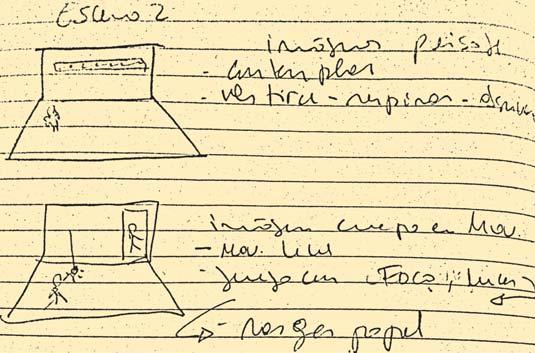 Escena 2
imágenes paisaje
- contemplar
- vestirse - respirar -
imágen cuerpo en Mov.
- Mov. 
- Juego con "Foco"; luces
- rasgar papel